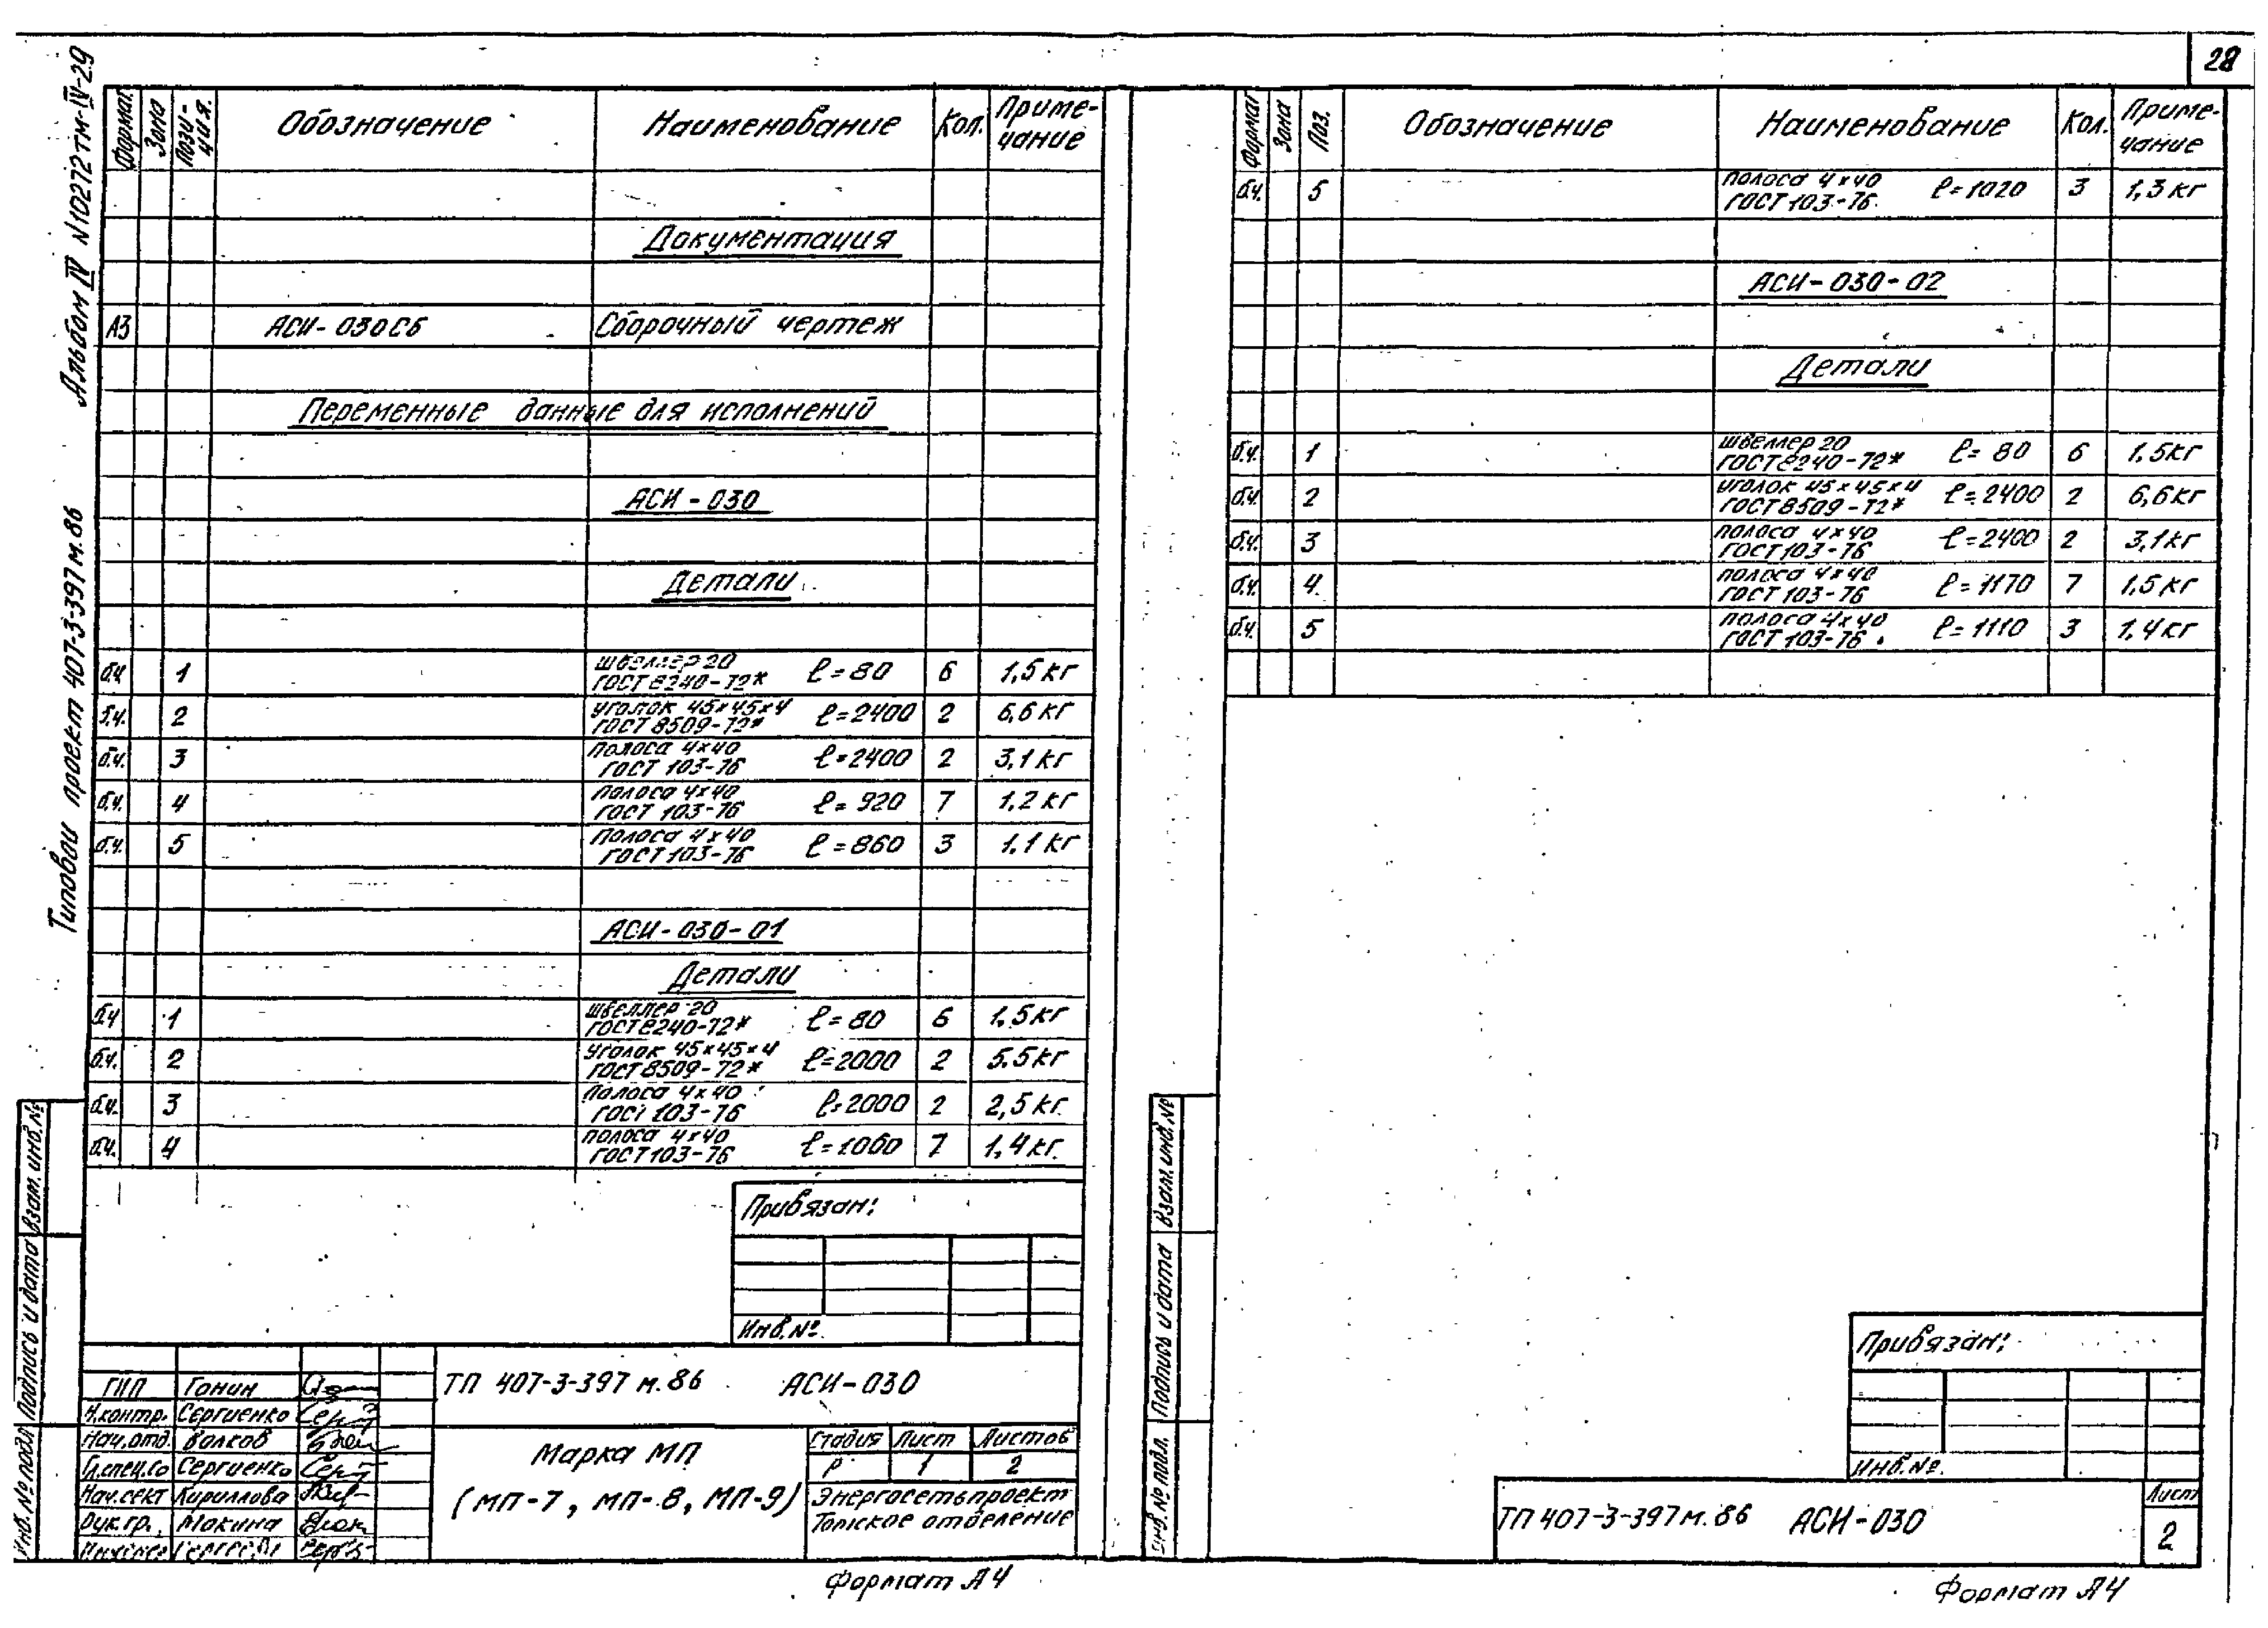 28
Альбом IV N10272тм-IV-29
Типовой проект 407-3-397м.86
Формат Зона Пози-ция. Обозначение Наименование Кол. Приме-чание
Документация
А3 АСИ-030СБ Сборочный чертеж
Переменные данные для исполнений
АСИ-030
Детали
б.ч. 1 швеллер 20 ГОСТ 8240-72* ℓ=80 6 1,5кг
б.ч. 2 уголок 45×45×4 ГОСТ 8509-72* ℓ=2400 2 6,6кг
б.ч. 3 полоса 4×40 ГОСТ 103-76 ℓ=2400 2 3,1кг
б.ч. 4 полоса 4×40 ГОСТ 103-76 ℓ=920 7 1,2кг
б.ч. 5 полоса 4×40 ГОСТ 103-76 ℓ=860 3 1,1кг
АСИ-030-01
Детали
б.ч 1 швеллер 20 ГОСТ 8240-72* ℓ=80 6 1,5кг
б.ч. 2 уголок 45×45×4 ГОСТ 8509-72* ℓ=2000 2 5.5кг
б.ч. 3 полоса 4×40 ГОСТ 103-76 ℓ=2000 2 2,5кг.
б.ч. 4 полоса 4×40 ГОСТ 103-76 ℓ=1060 7 1,4кг.
Привязан:
Инв.№.
ТП 407-3-397 м.86 АСИ-030
ГИП Гонин
Н.контр. Сергиенко
Нач.отд. Волков
Гл.спец.со Сергиенко
Нач.сект Кириллова
Рук.гр. Мокина
Марка МП
(МП-7, МП-8, МП-9)
Стадия Лист Листов
Р 1 2
Энергосетьпроект
Томское отделение
Взам. инв.№
Подпись и дата
Инв.№ подл
Формат А4
Формат Зона Поз. Обозначение Наименование Кол. Приме-чание
б.ч. 5 полоса 4×40 ГОСТ 103-76. ℓ=1020 3 1,3кг
АСИ-030-02
Детали
б.ч. 1 швеллер 20 ГОСТ 8240-72* ℓ=80 6 1,5кг
б.ч. 2 уголок 45×45×4 ГОСТ 8509-72* ℓ=2400 2 6,6кг
б.ч. 3 полоса 4×40 ГОСТ 103-76 ℓ=2400 2 3,1кг
б.ч. 4. полоса 4×40 ГОСТ 103-76 ℓ=1170 7 1,5кг
б.ч. 5 полоса 4×40 ГОСТ 103-76 ℓ=1110 3 1,4кг
Взам. инв.№
Подпись и дата
Инв.№ подл.
Привязан:
Инв.№.
ТП 407-3-397м.86 АСИ-030
Лист
2
Формат А4